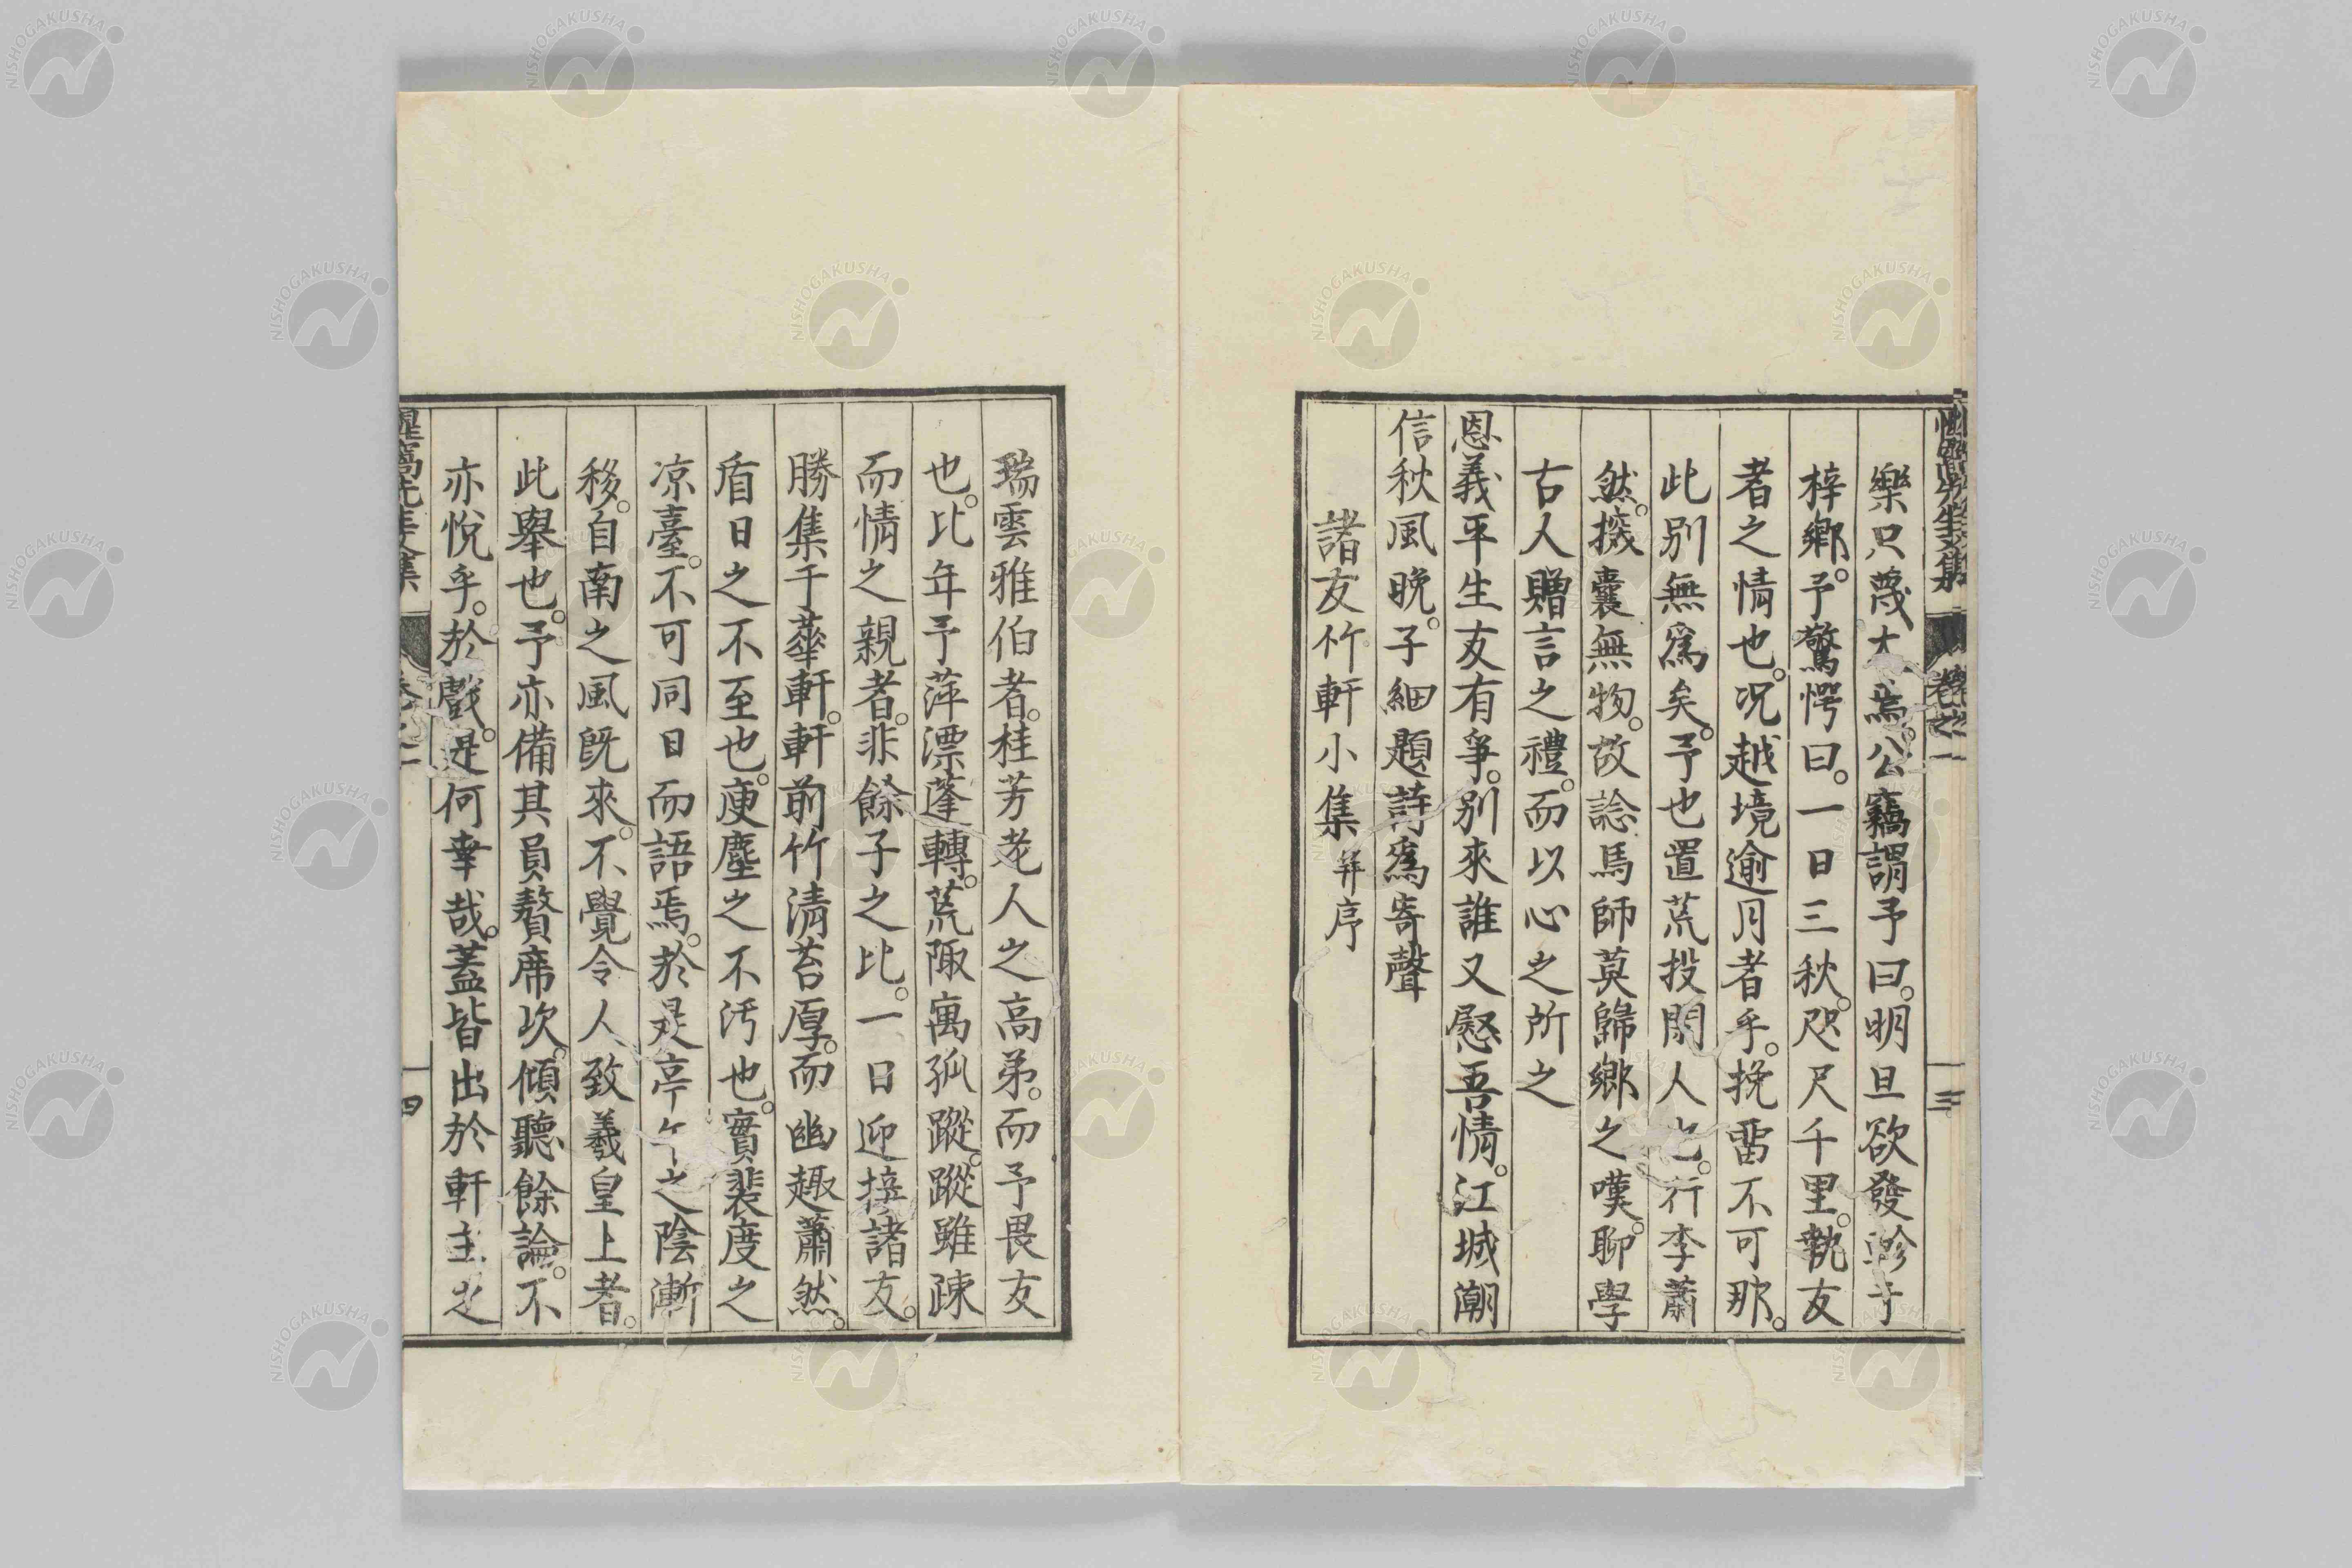 樂只蔑大焉。公竊謂予曰。明旦欲發軫于
梓鄉。予驚愕曰。一日三秋。咫尺千里。執友
者之情也。況越境逾月者乎。挽畱不可那。
此別無爲矣。予也置荒投閑人也。行李蕭
然。撿囊無物。故諗馬師莫歸鄉之嘆。聊學
古人贈言之禮。而以心之所之
恩義平生友有爭。別來誰又慰吾情。江城潮
信秋風晩。子細題詩爲寄聲
諸友竹軒小集 并序
卷之一
三
瑞雲雅伯者。桂芳老人之高弟。而予畏友
也。比年予萍漂蓬轉。荒陬寓孤蹤。蹤雖疎
而情之親者。非餘子之比。一日迎接諸友。
勝集于華軒。軒前竹清苔厚。而幽趣蕭然。
盾日之不至也。庾塵之不汚也。實裴度之
凉臺。不可同日而語焉。於是亭午之陰漸
移。自南之風既來。不覺令人致羲皇上者。
此舉也。予亦備其員贅席次。傾聽餘論。不
亦悅乎。於戲。是何幸哉。蓋皆出於軒主之
四
NISHOGAKUSHA